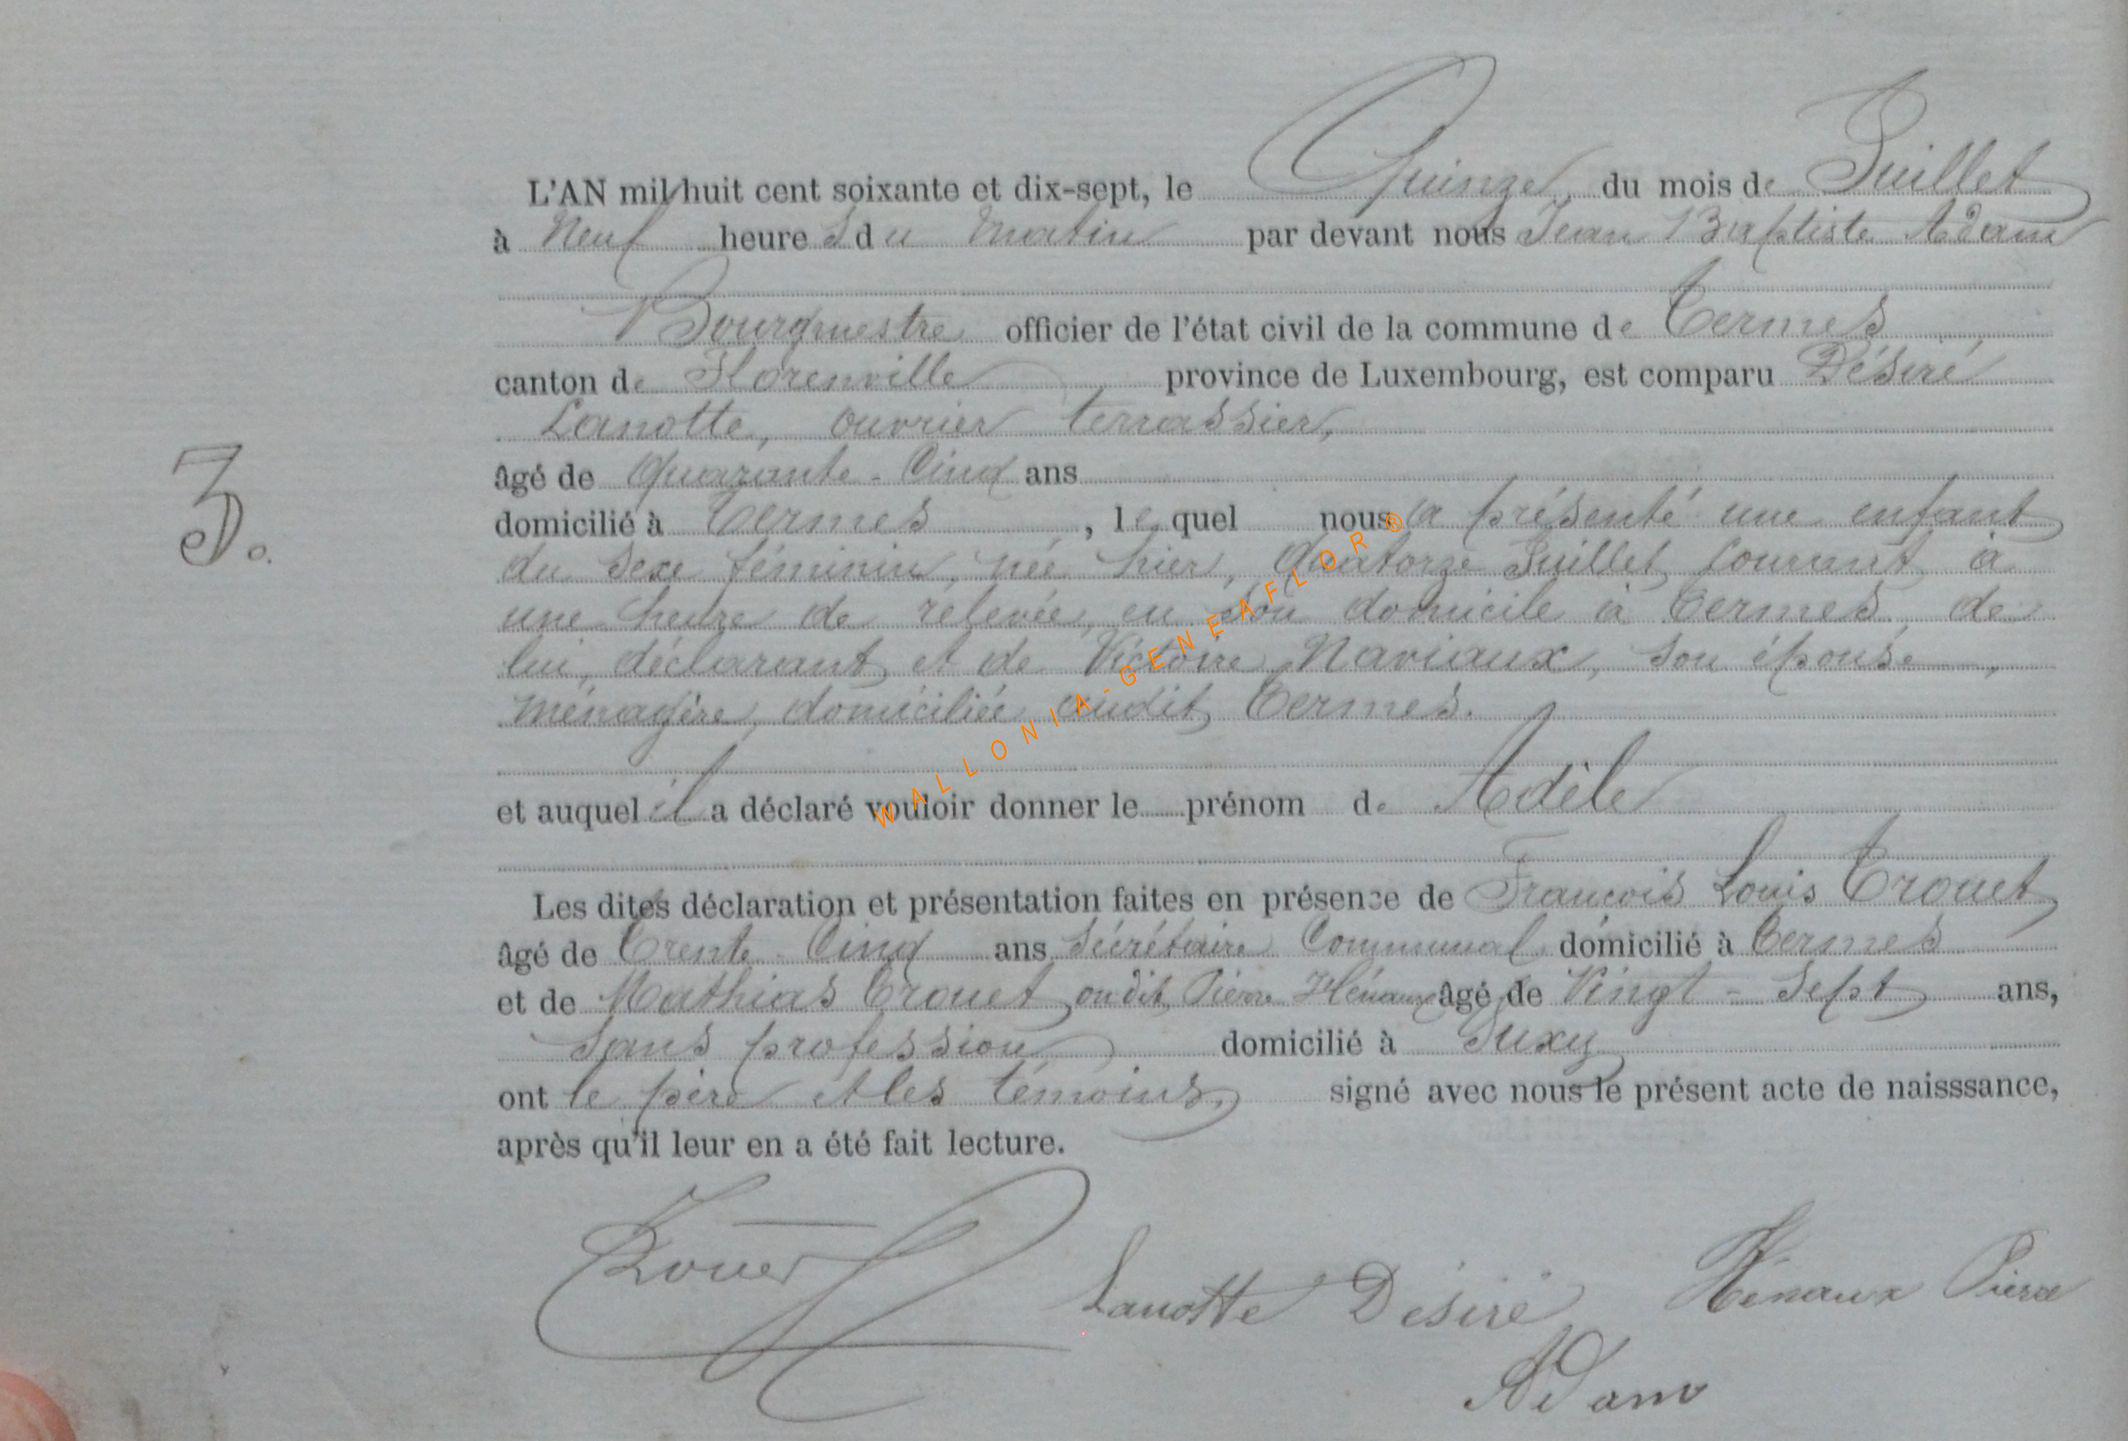 L'AN mil huit cent soixante et dix-sept, le Quinze, du mois de Juillet
à Neuf heures du matin par devant nous Jean Baptiste Adam
Bourgmestre officier de l'état civil de la commune de Termes
canton de Florenville province de Luxembourg, est comparu Désiré
Lanotte, ouvrier terrassier,
âgé de Quarante-Cinq ans
domicilié à Termes, lequel nous a présenté une enfant
du sexe féminin, née hier, Quatorze Juillet courant à
une heure de rélevée, en son domicile à Termes, de
lui, déclarant et de Victoire Naviaux, son épouse,
ménagère, domiciliée audit Termes.
et auquel il a déclaré vouloir donner le prénom de Adèle
Les dites déclaration et présentation faites en présence de François Louis Trouet
âgé de Trente-Cinq ans Sécrétaire Communal domicilié à Termes
et de Mathias Trouet, ou dit Pierre Hénaux âgé de Vingt-Sept ans,
sans profession domicilié à Suxy
ont le père et les témoins, signé avec nous le présent acte de naisssance,
après qu'il leur en a été fait lecture.
3.
Trouet
Lanotte Désiré
Hénaux Pierre
Adam
WALLONIA-GENEAFLOR®